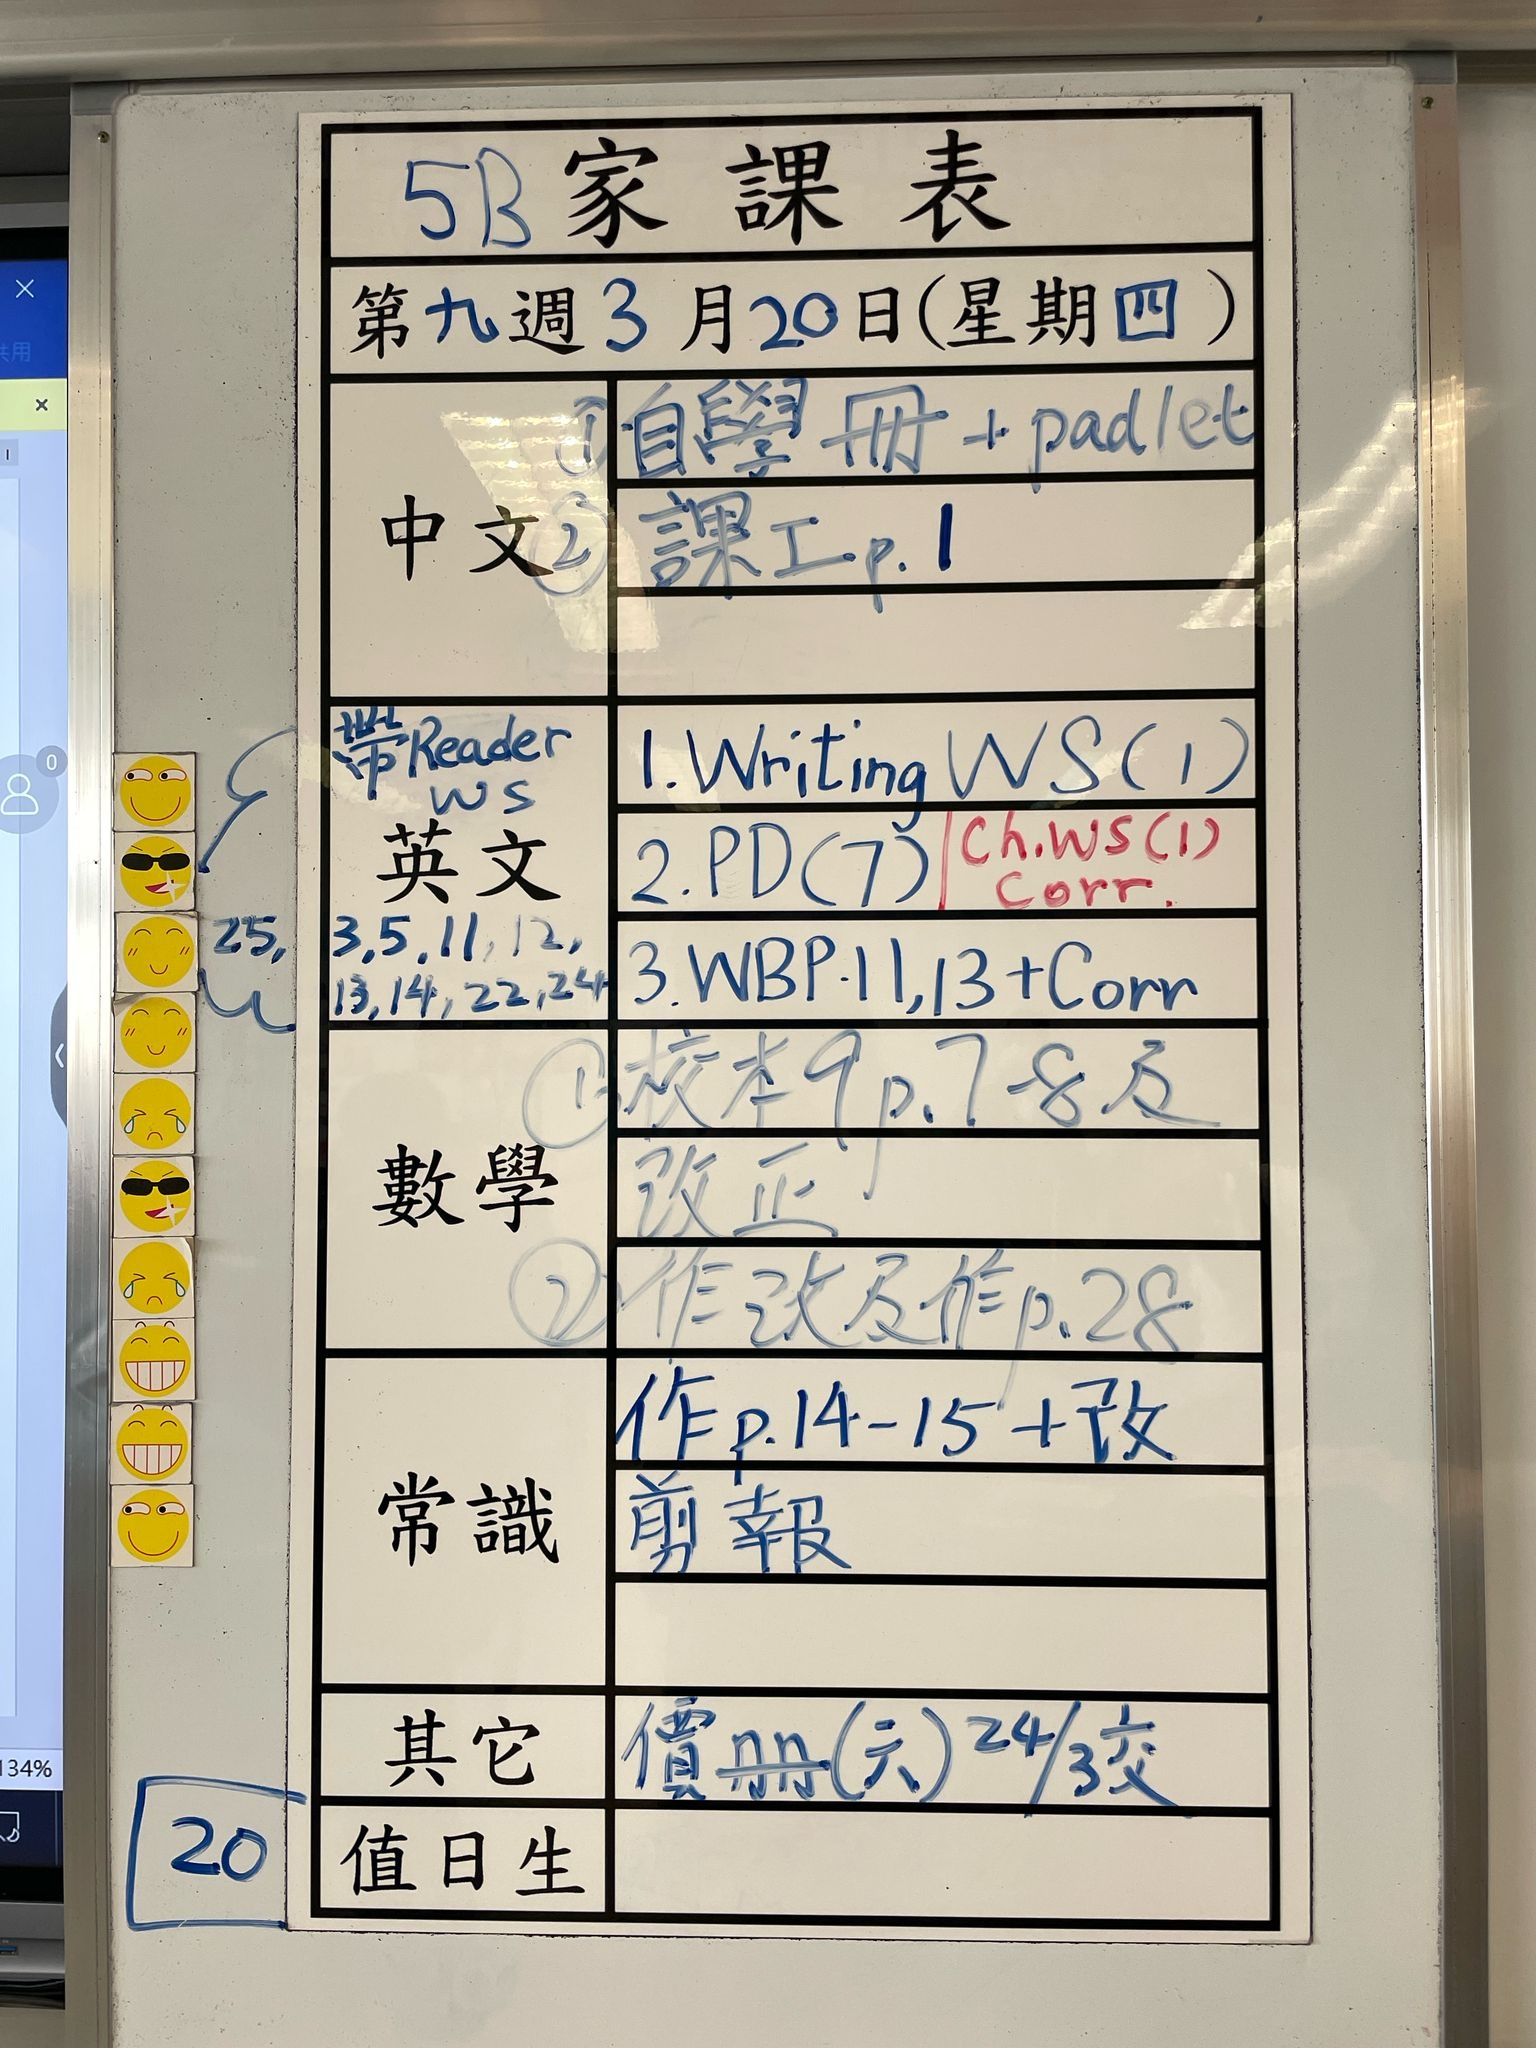 5B家課表
第九週3月20日(星期四)
中文
① 自學冊 + padlet
② 課工p.1
帶Reader
WS
英文
3,5,11,12,
13,14,22,24
25,
1.Writing WS(1)
2.PD(7) Ch.WS(1)
Corr.
3.WBP.11,13+Corr
數學
① 校本9p.7-8及
改正
② 作改及作p.28
常識
作p.14-15+改
剪報
其它
價冊(六)24/3交
值日生
20
共用
0
134%